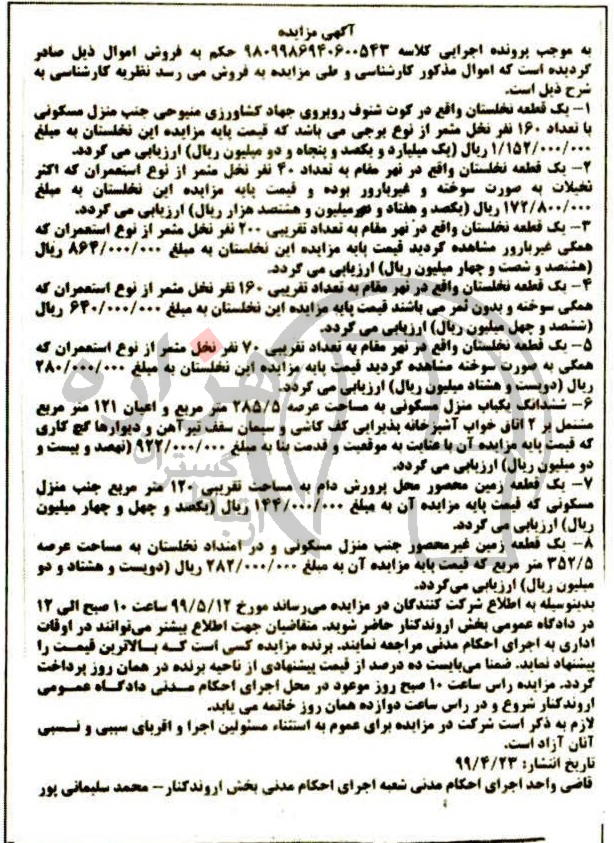 آگهی مزایده
به موجب پرونده اجرایی کلاسه ۹۸۰۹۹۸۶۹۴۰۶۰۰۵۴۳ حکم به فروش اموال ذیل صادر
گردیده است که اموال مذکور کارشناسی و طی مزایده به فروش می رسد نظریه کارشناسی به
شرح ذیل است.
۱- یک قطعه نخلستان واقع در کوت شنوف روبروی جهاد کشاورزی منیوحی جنب منزل مسکونی
با تعداد ۱۶۰ نفر نخل مثمر از نوع برحی می باشد که قیمت پایه مزایده این نخلستان به مبلغ
۱/۱۵۲/۰۰۰/۰۰۰ ریال (یک میلیارد و یکصد و پنجاه و دو میلیون ریال) ارزیابی می گردد.
۲- یک قطعه نخلستان واقع در نهر مقام به تعداد ۴۰ نفر نخل مثمر از نوع استعمران که اکثر
نخیلات به صورت سوخته و غیربارور بوده و قیمت پایه مزایده این نخلستان به مبلغ
۱۷۲/۸۰۰/۰۰۰ ریال (یکصد و هفتاد و دو میلیون و هشتصد هزار ریال) ارزیابی می گردد.
۳- یک قطعه نخلستان واقع در نهر مقام به تعداد تقریبی ۲۰۰ نفر نخل مثمر از نوع استعمران که
همگی غیربارور مشاهده گردید قیمت پایه مزایده این نخلستان به مبلغ ۸۶۴/۰۰۰/۰۰۰ ریال
(هشتصد و شصت و چهار میلیون ریال) ارزیابی می گردد.
۴- یک قطعه نخلستان واقع در نهر مقام به تعداد تقریبی ۱۶۰ نفر نخل مثمر از نوع استعمران که
همگی سوخته و بدون ثمر می باشند قیمت پایه مزایده این نخلستان به مبلغ ۶۴۰/۰۰۰/۰۰۰ ریال
(ششصد و چهل میلیون ریال) ارزیابی می گردد.
۵- یک قطعه نخلستان واقع در نهر مقام به تعداد تقریبی ۷۰ نفر نخل مثمر از نوع استعمران که
همگی به صورت سوخته مشاهده گردید قیمت پایه مزایده این نخلستان به مبلغ ۲۸۰/۰۰۰/۰۰۰
ریال (دویست و هشتاد میلیون ریال) ارزیابی می گردد.
۶- ششدانگ یکباب منزل مسکونی به مساحت عرصه ۲۸۵/۵ متر مربع و اعیان ۱۲۱ متر مربع
مشتمل بر ۲ اتاق خواب آشپزخانه پذیرایی کف کاشی و سیمان سقف تیرآهن و دیوارها گچ کاری
که قیمت پایه مزایده آن با عنایت به موقعیت و قدمت بنا به مبلغ ۹۲۲/۰۰۰/۰۰۰ (نهصد و بیست و
دو میلیون ریال) ارزیابی می گردد.
۷- یک قطعه زمین محصور محل پرورش دام به مساحت تقریبی ۱۲۰ متر مربع جنب منزل
مسکونی که قیمت پایه مزایده آن به مبلغ ۱۴۴/۰۰۰/۰۰۰ ریال (یکصد و چهل و چهار میلیون
ریال) ارزیابی می گردد.
۸- یک قطعه زمین غیرمحصور جنب منزل مسکونی و در امتداد نخلستان به مساحت عرصه
۳۵۲/۵ متر مربع که قیمت پایه مزایده آن به مبلغ ۲۸۲/۰۰۰/۰۰۰ ریال (دویست و هشتاد و دو
میلیون ریال) ارزیابی می‌گردد.
بدینوسیله به اطلاع شرکت کنندگان در مزایده می‌رساند مورخ ۹۹/۵/۱۲ ساعت ۱۰ صبح الی ۱۲
در دادگاه عمومی بخش اروندکنار حاضر شوید. متقاضیان جهت اطلاع بیشتر می‌توانند در اوقات
اداری به اجرای احکام مدنی مراجعه نمایند. برنده مزایده کسی است که بالاترین قیمت را
پیشنهاد نماید. ضمنا می‌بایست ده درصد از قیمت پیشنهادی از ناحیه برنده در همان روز پرداخت
گردد. مزایده راس ساعت ۱۰ صبح روز موعود در محل اجرای احکام مدنی دادگاه عمومی
اروندکنار شروع و در راس ساعت دوازده همان روز خاتمه می یابد.
لازم به ذکر است شرکت در مزایده برای عموم به استثناء مسئولین اجرا و اقربای سببی و نسبی
آنان آزاد است.
تاریخ انتشار: ۹۹/۴/۲۳
قاضی واحد اجرای احکام مدنی شعبه اجرای احکام مدنی بخش اروندکنار- محمد سلیمانی پور
هزاره